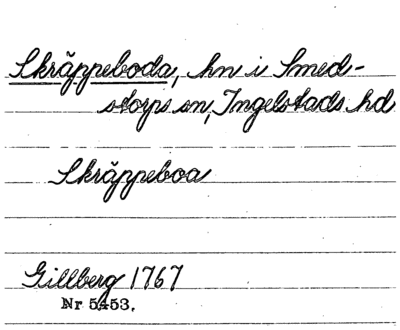 Skräppeboda, hn i Smed-
storps sn, Ingelstads hd
Skräppeboa
Gillberg 1767
Nr 5453.